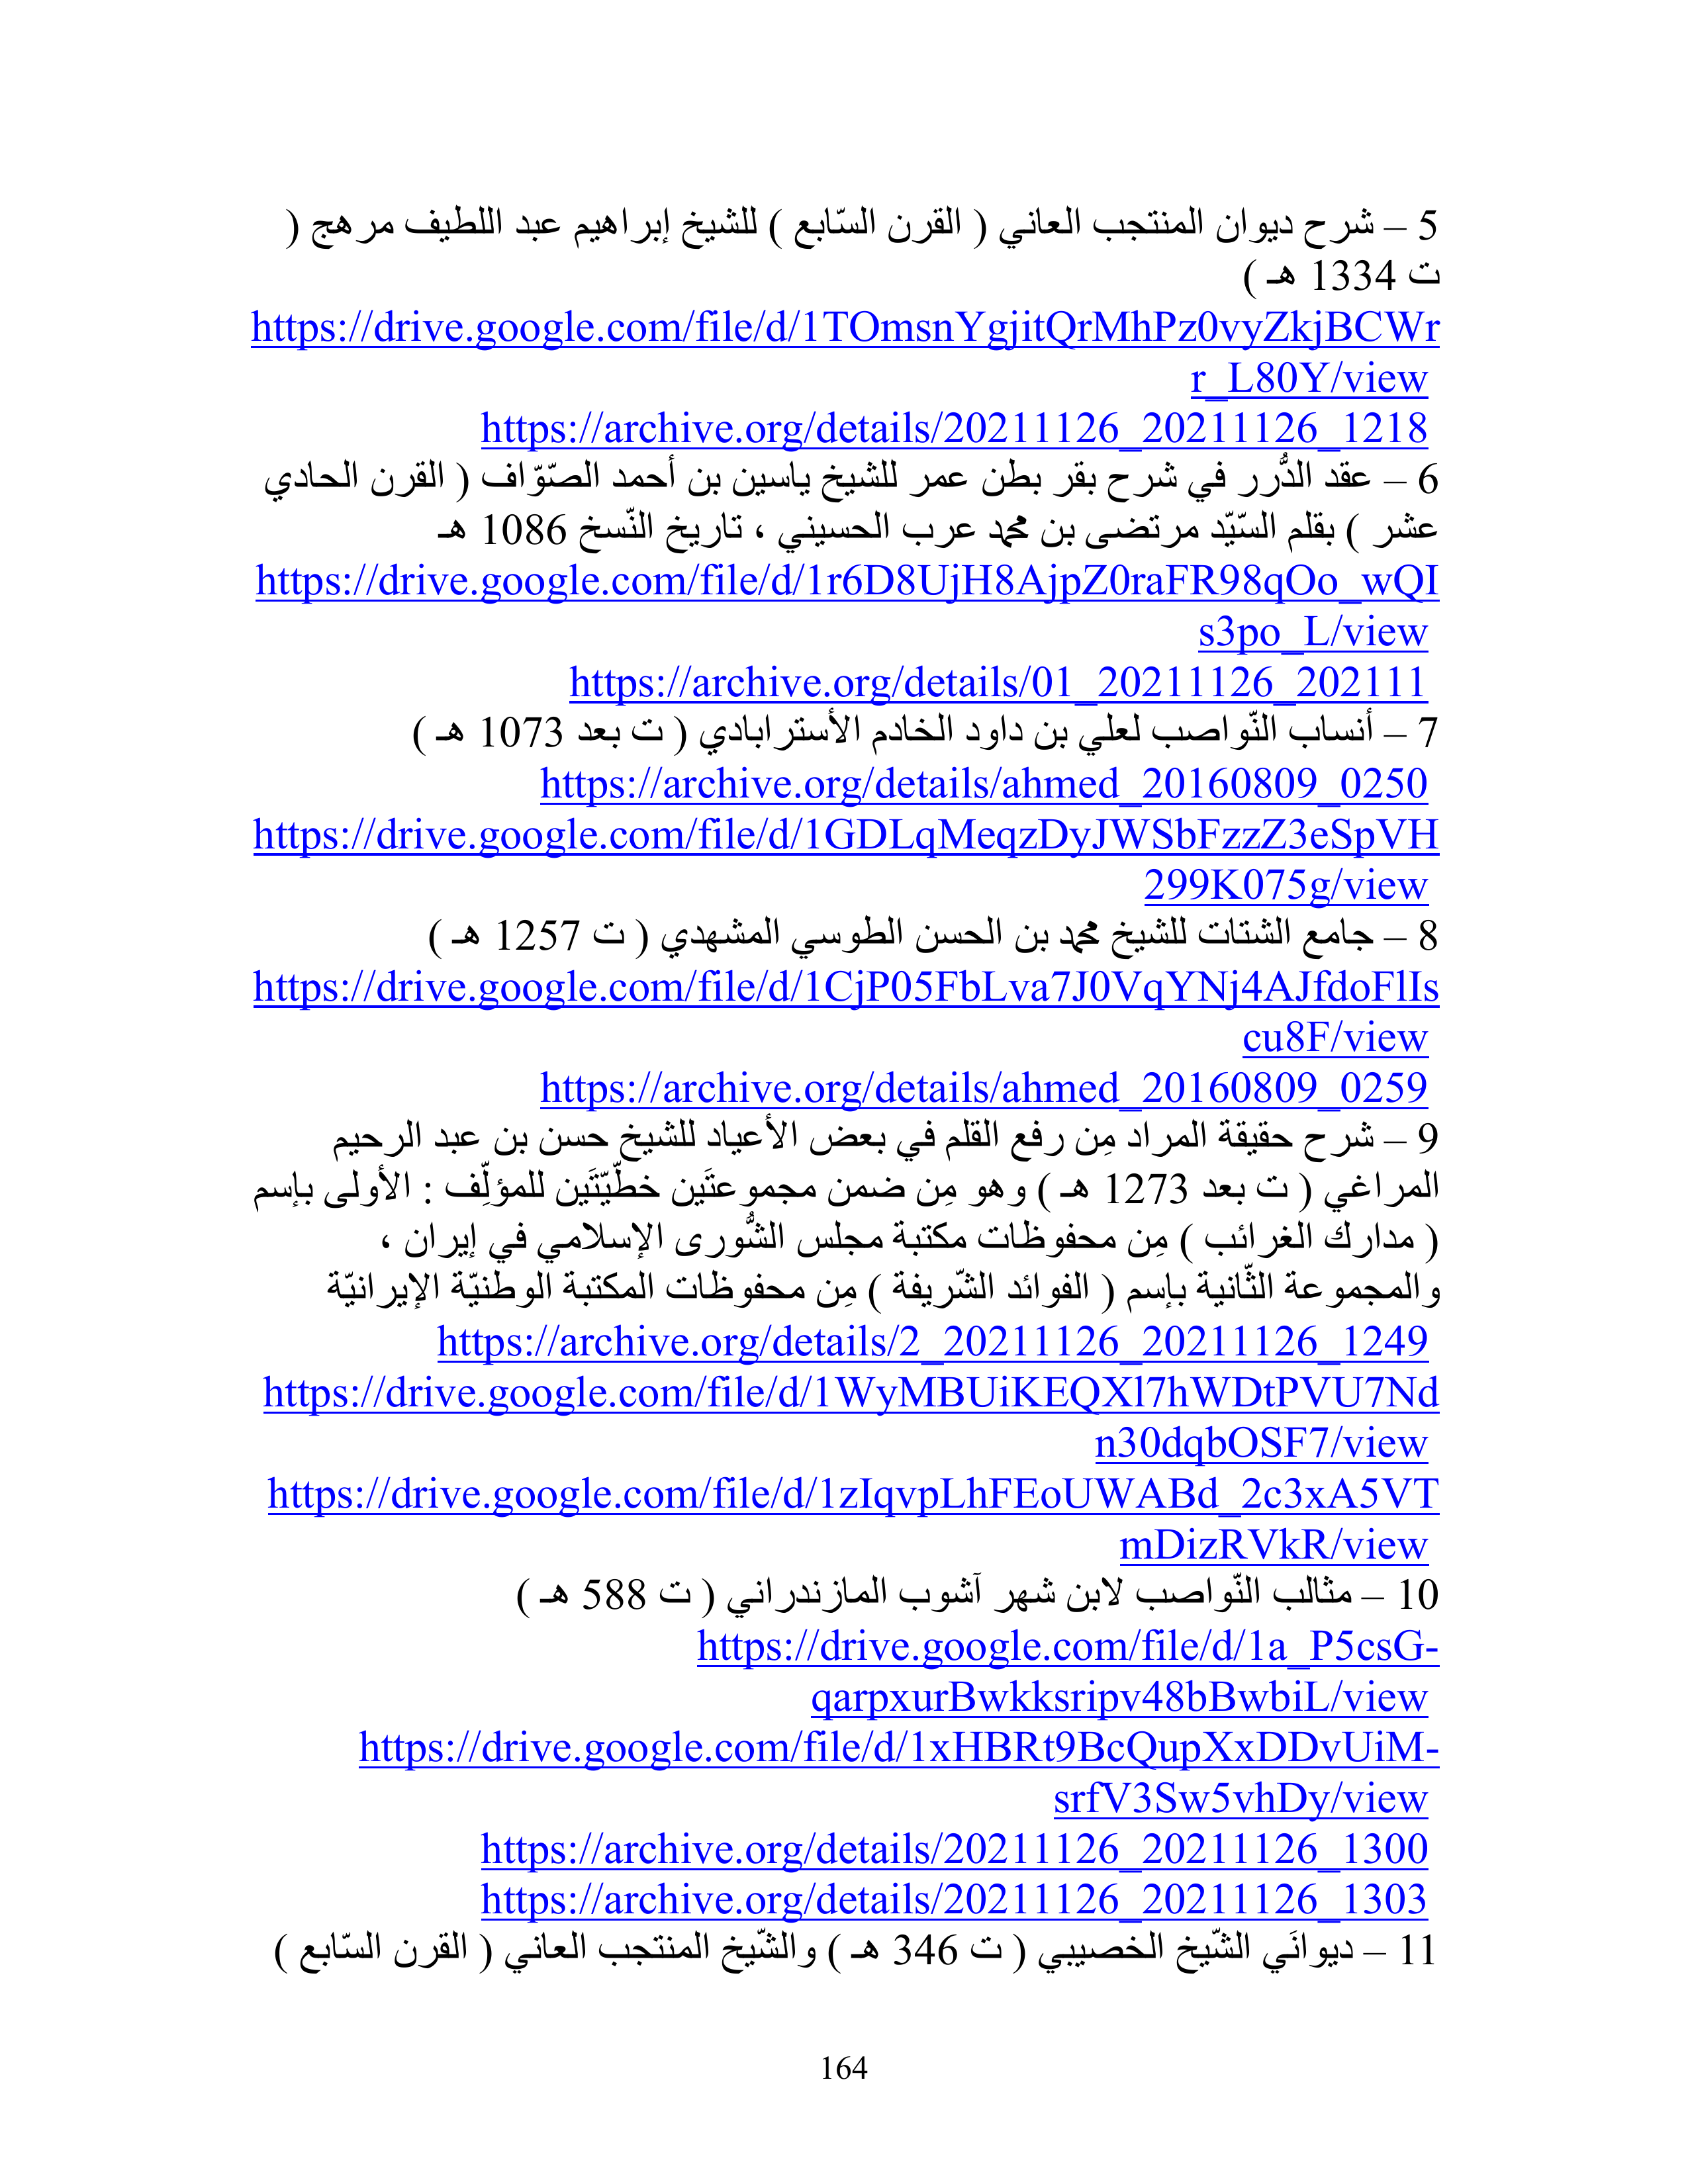 5 – شرح ديوان المنتجب العاني ( القرن السّابع ) للشيخ إبراهيم عبد اللطيف مرهج (
ت 1334 هـ )
https://drive.google.com/file/d/1TOmsnYgjitQrMhPz0vyZkjBCWr
r_L80Y/view
https://archive.org/details/20211126_20211126_1218
6 – عقد الدُّرر في شرح بقر بطن عمر للشيخ ياسين بن أحمد الصّوّاف ( القرن الحادي
عشر ) بقلم السّيّد مرتضى بن محمد عرب الحسيني ، تاريخ النّسخ 1086 هـ
https://drive.google.com/file/d/1r6D8UjH8AjpZ0raFR98qOo_wQI
s3po_L/view
https://archive.org/details/01_20211126_202111
7 – أنساب النّواصب لعلي بن داود الخادم الأسترابادي ( ت بعد 1073 هـ )
https://archive.org/details/ahmed_20160809_0250
https://drive.google.com/file/d/1GDLqMeqzDyJWSbFzzZ3eSpVH
299K075g/view
8 – جامع الشتات للشيخ محمد بن الحسن الطوسي المشهدي ( ت 1257 هـ )
https://drive.google.com/file/d/1CjP05FbLva7J0VqYNj4AJfdoFlIs
cu8F/view
https://archive.org/details/ahmed_20160809_0259
9 – شرح حقيقة المراد مِن رفع القلم في بعض الأعياد للشيخ حسن بن عبد الرحيم
المراغي ( ت بعد 1273 هـ ) وهو مِن ضمن مجموعتَين خطّيّتَين للمؤلِّف : الأولى بإسم
( مدارك الغرائب ) مِن محفوظات مكتبة مجلس الشُّورى الإسلامي في إيران ،
والمجموعة الثّانية بإسم ( الفوائد الشّريفة ) مِن محفوظات المكتبة الوطنيّة الإيرانيّة
https://archive.org/details/2_20211126_20211126_1249
https://drive.google.com/file/d/1WyMBUiKEQXl7hWDtPVU7Nd
n30dqbOSF7/view
https://drive.google.com/file/d/1zIqvpLhFEoUWABd_2c3xA5VT
mDizRVkR/view
10 – مثالب النّواصب لابن شهر آشوب المازندراني ( ت 588 هـ )
https://drive.google.com/file/d/1a_P5csG-
qarpxurBwkksripv48bBwbiL/view
https://drive.google.com/file/d/1xHBRt9BcQupXxDDvUiM-
srfV3Sw5vhDy/view
https://archive.org/details/20211126_20211126_1300
https://archive.org/details/20211126_20211126_1303
11 – ديوانَي الشّيخ الخصيبي ( ت 346 هـ ) والشّيخ المنتجب العاني ( القرن السّابع )
164